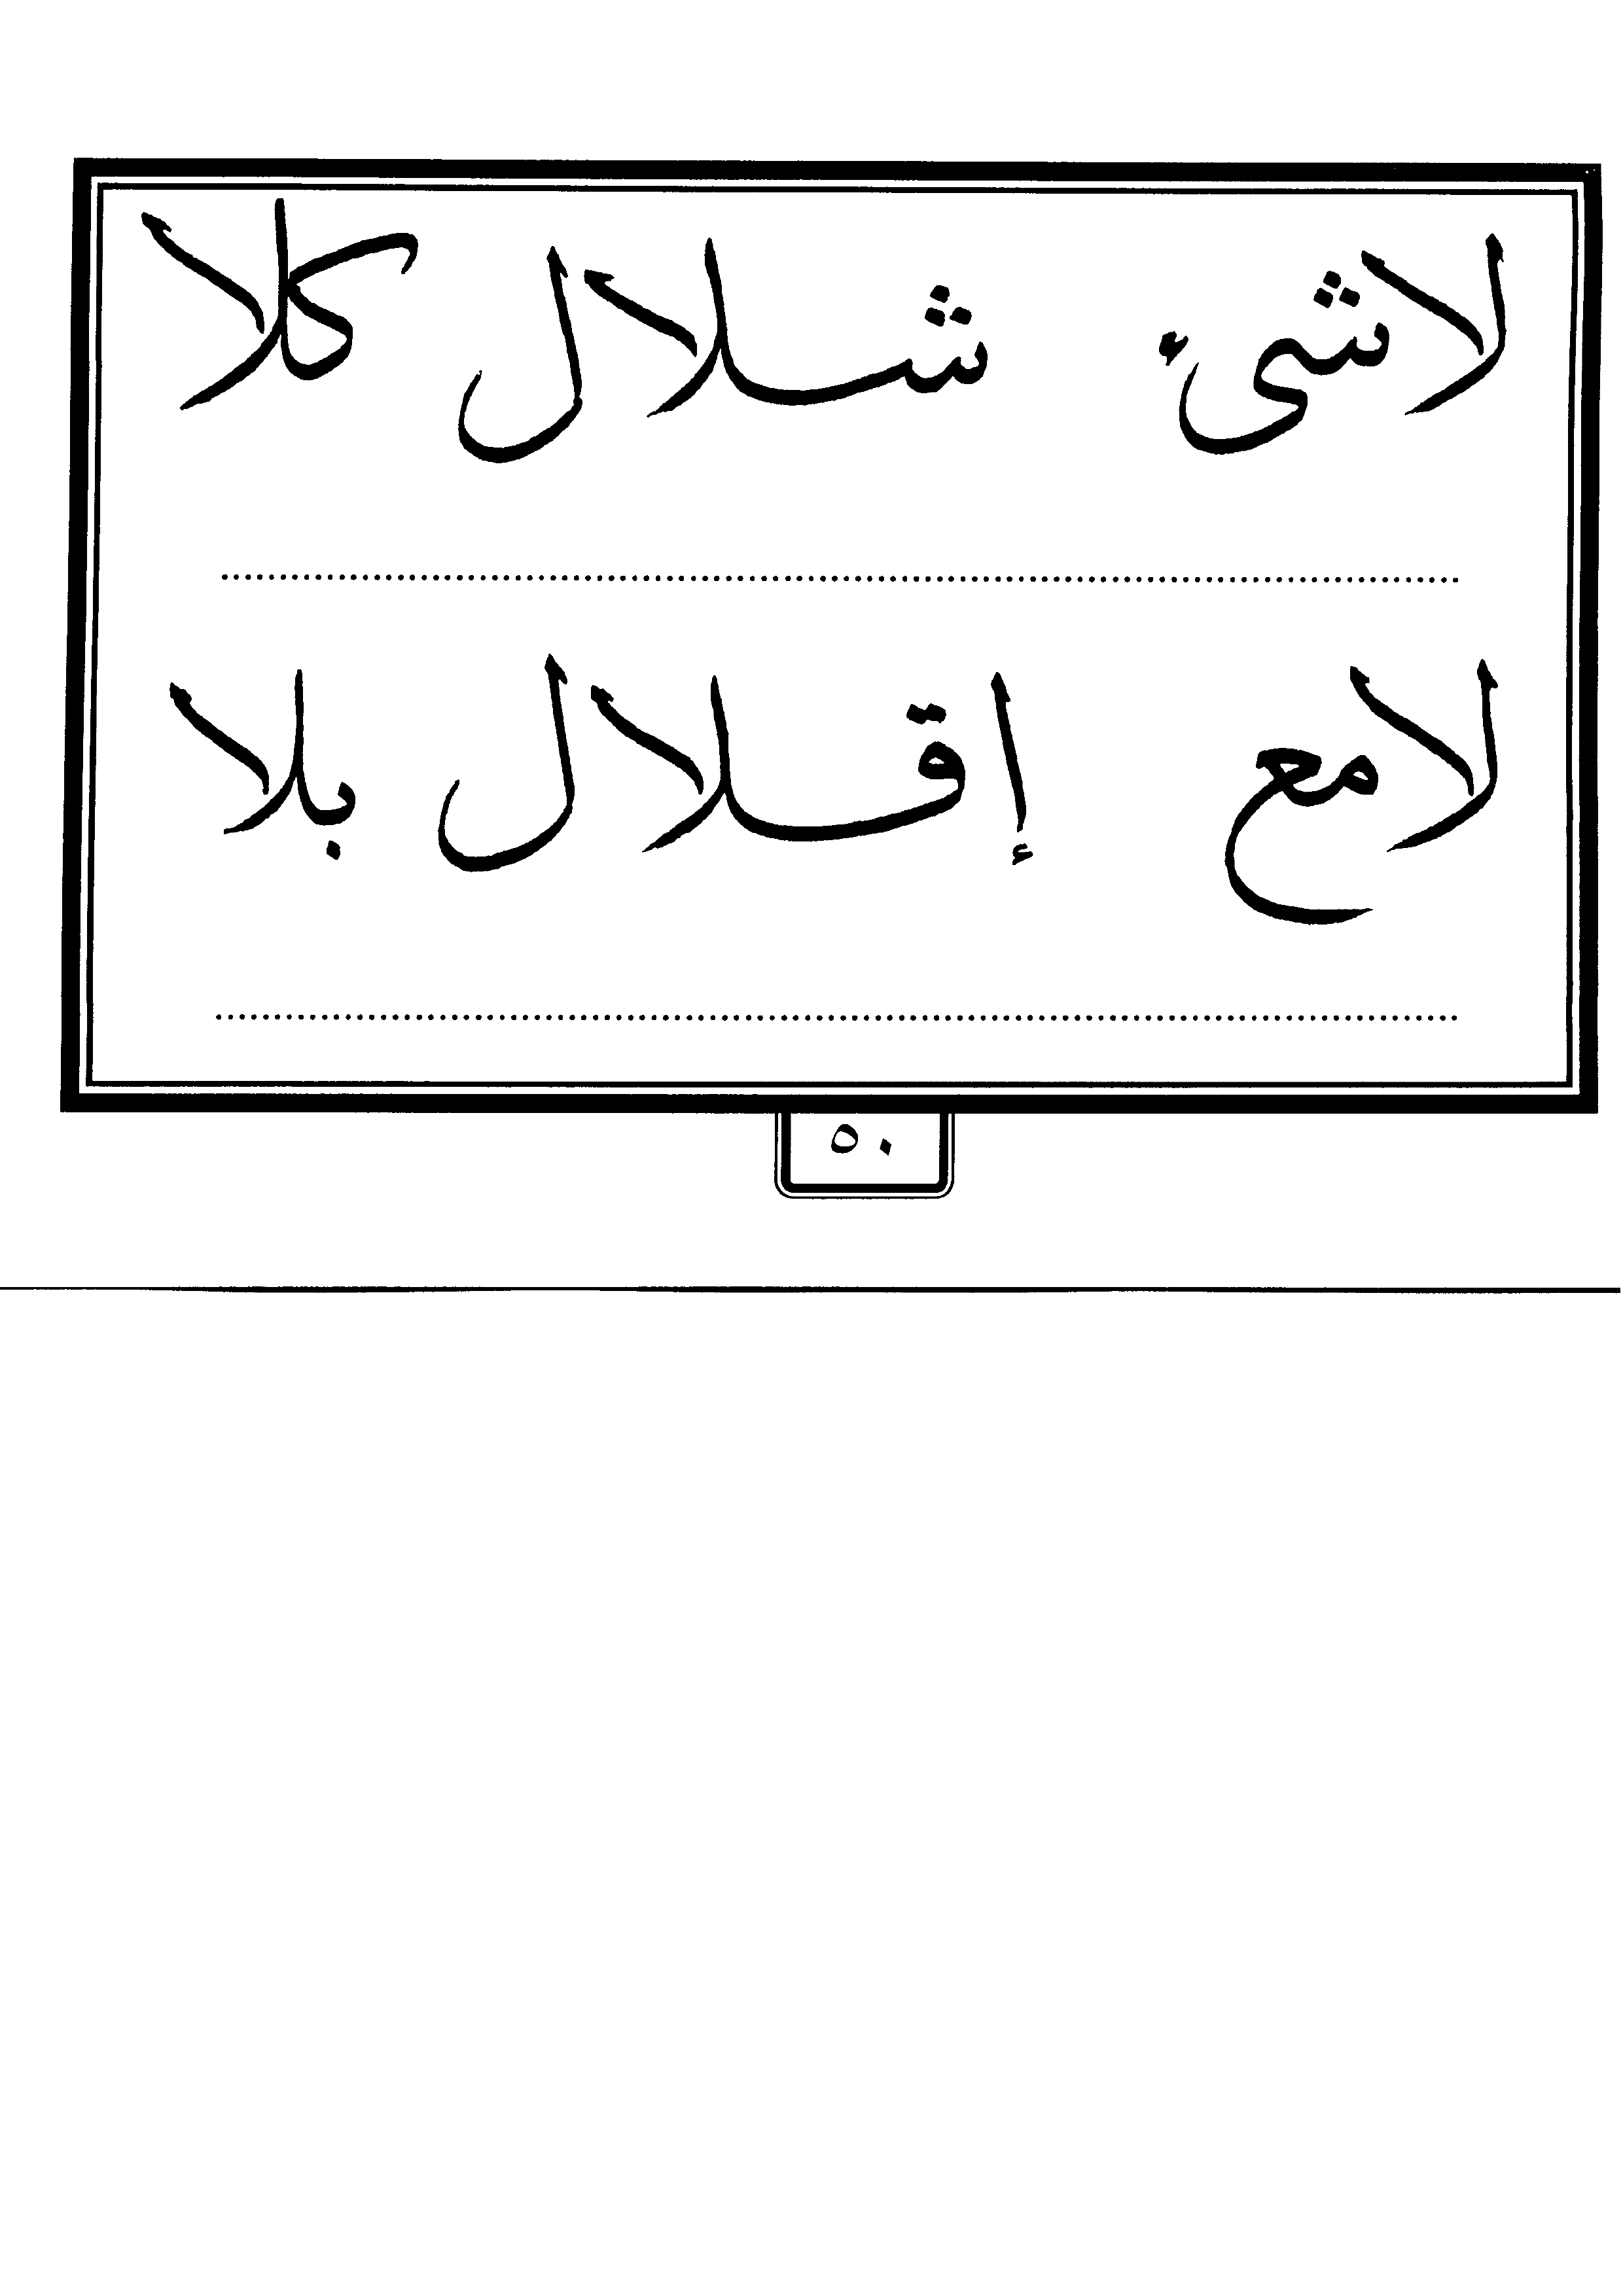 لاشىء شلال كلا
لامع إقلال بلا
٥٠